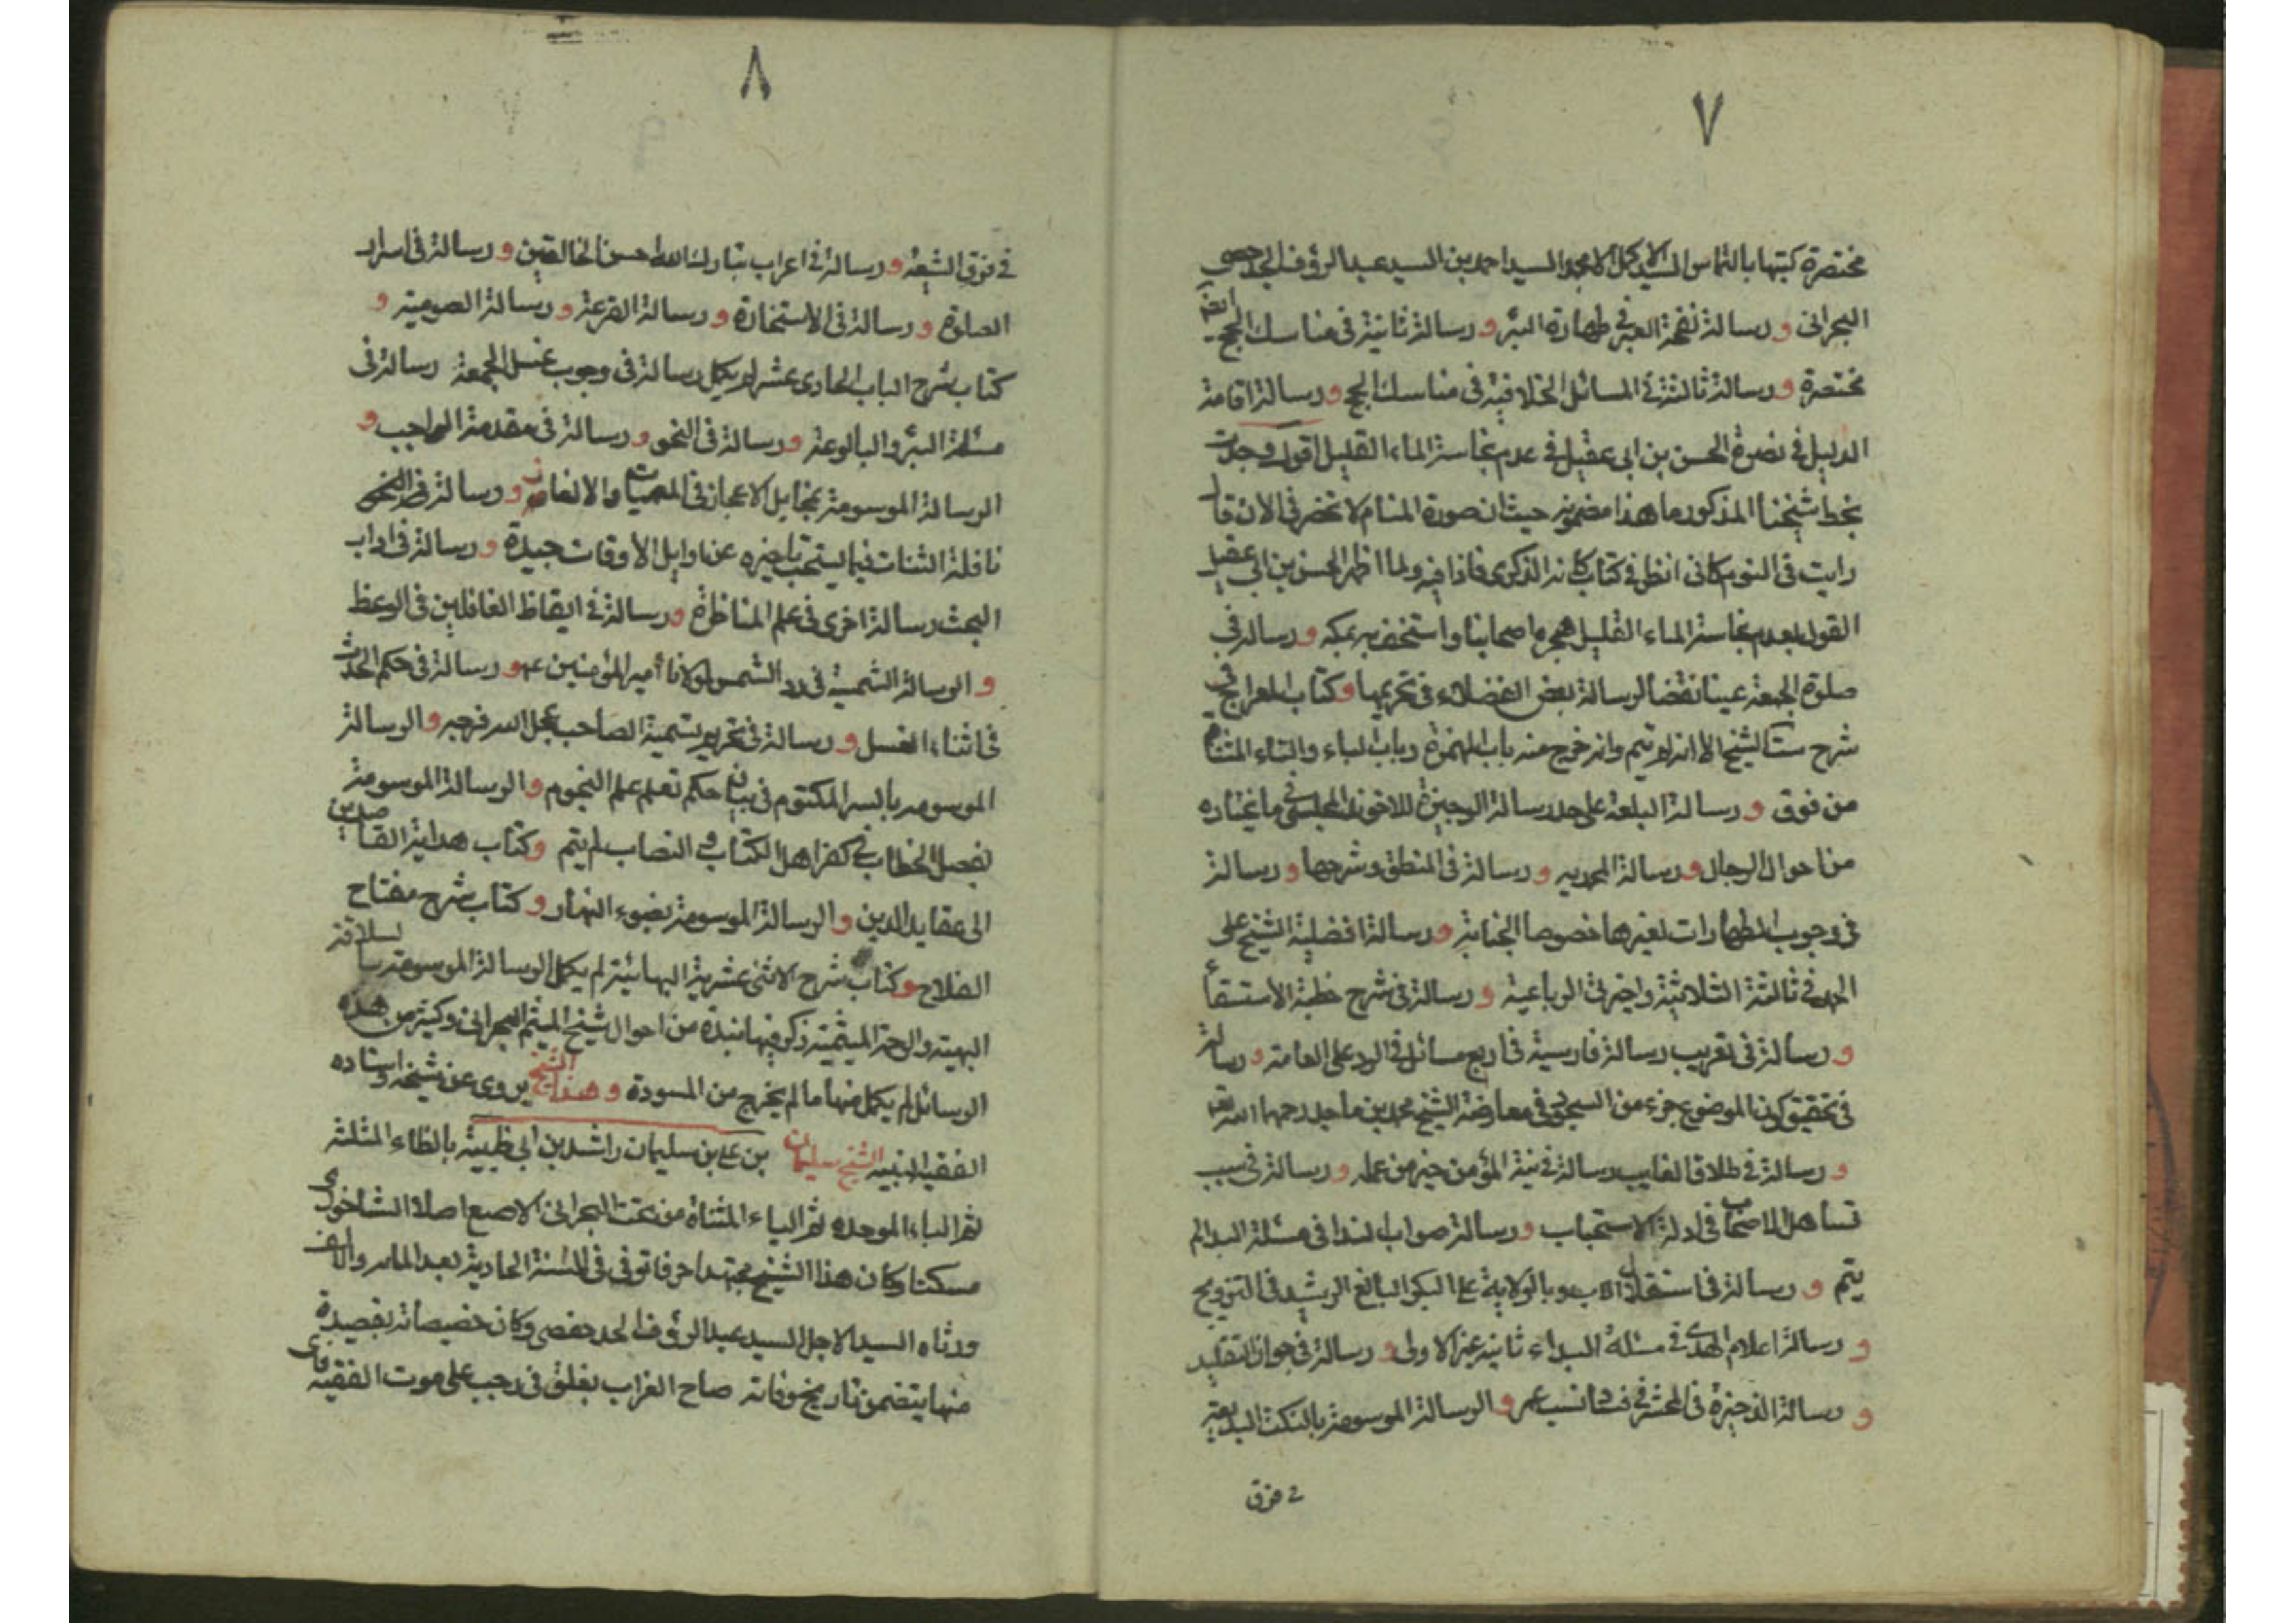 ٧
مختصرة كتبتها بالتماس السيد الاكمل الامجد السيد احمد بن السيد عبد الرؤف الجدحفصى
البحرانى و رسالة نفحة العبير فى طهارة البئر و رسالة ثانية فى مناسك الحج ايضا
مختصرة و رسالة ثالثة فى المسائل الخلافية فى مناسك الحج و رسالة اقامة
الدليل فى نصرة الحسن بن ابى عقيل فى عدم نجاسة الماء القليل اقول وجدت
بخط شيخنا المذكور ما هذا مضمونه حيث ان صورة المنام لا تحضرنى الان قال
رايت فى النوم كانى انظر فى كتاب كانه الذكرى فاذا فيه ولما اظهر الحسن بن ابى عقيل
القول بعدم نجاسة الماء القليل هجره اصحابنا واستخف به بمكه و رسالة فى
صلوة الجمعة عينا نقضا لرسالة بعض الفضلاء فى تحريمها و كتاب المعراج فى
شرح ست الشيخ الا انه لم يتم وانه خرج منه باب الهمزة وباب الباء والتاء المثناة
من فوق و رسالة البلغة على حد رسالة الوجيزة للاخوند المجلسى فى ما يختاره
من احوال الرجال و رسالة المحمديه و رسالة فى المنطق وشرحها و رسالة
فى وجوب الطهارات لغيرها خصوصا الجنابة و رسالة افضلية التسبيح على
الحمد فى ثالثة الثلاثية واخيرتى الرباعية و رسالة فى شرح خطبة الاستسقاء
و رسالة فى تعريب رسالة فارسية فى اربع مسائل فى الرد على العامة و رسالة
فى تحقيق كون الموضوع جزء من السجود فى معارضة الشيخ محمد بن ماجد رحمهما الله تعالى
و رسالة فى طلاق الغايب رسالة فى نية المؤمن خير من عمله و رسالة فى سبب
تساهل الاصحاب فى ادلة الاستحباب و رسالة صواب الندا فى مسئلة البدا لم
يتم و رسالة فى استقلال الاب بالولاية على البكر البالغ الرشيد فى التزويج
و رسالة اعلام الهدى فى مسئلة البداء ثانية غير الاولى و رسالة فى جواز التقليد
و رسالة الذخيرة فى المحشر فى فساد نسب عمر و الرسالة الموسومة بالنكت البديعة
فى فرق
٨
فى فرق الشيعة و رسالة فى اعراب تبارك الله احسن الخالقين و رسالة فى اسرار
الصلوة و رسالة فى الاستخارة و رسالة القرعة و رسالة الصومية و
كتاب شرح الباب الحادى عشر لم يكمل رسالة فى وجوب غسل الجمعة رسالة فى
مسئلة البئر والبالوعة و رسالة فى النحو و رسالة فى مقدمة الواجب و
الرسالة الموسومة بمخايل الاعجاز فى المعميات والالغاز و رسالة فى
نافلة الثنات فيما يستحب تاخيره عن اوايل الأوقات جيدة و رسالة فى اداب
البحث رسالة اخرى فى علم المناظرة و رسالة فى ايقاظ الغافلين فى الوعظ
و الرسالة الشمسية فى رد الشمس لمولانا أمير المؤمنين ع و رسالة فى حكم الحدث
فى اثناء الغسل و رسالة فى تحريم تسمية الصاحب عجل الله فرجه و الرسالة
الموسومه بالسر المكتوم فى بيان حكم تعلم علم النجوم و الرسالة الموسومة
بفصل الخطاب فى كفر اهل الكتاب والنصاب لم يتم و كتاب هداية القاصدين
الى عقايد الدين و الرسالة الموسومة بضوء النهار و كتاب شرح مفتاح
الفلاح و كتاب شرح الاثنى عشرية البهائية لم يكمل الرسالة الموسومة بالسلافة
البهية والترجمة الميثمية ذكر فيها نبذة من احوال شيخ الميثم البحرانى وكثير من هذه
الرسائل لم يكمل منها ما لم يخرج من المسودة و هذا الشيخ يروى عن شيخه واستاده
الفقيه النبيه الشيخ سليمان بن على بن سليمان راشد بن ابى ظبية بالظاء المثلثة
ثم الباء الموحده ثم الياء المثناة من تحت البحرانى الاصبع اصلا الشاخورى
مسكنا وكان هذا الشيخ مجتهدا صرفا توفى فى السنة الحادية بعد المائة والالف
ورثاه السيد الاجل السيد عبد الرؤف الجد حفصى وكان خصيصا به بقصيدة
منها يتضمن تاريخ وفاته صاح الغراب بغلق فى رجب على موت الفقيه